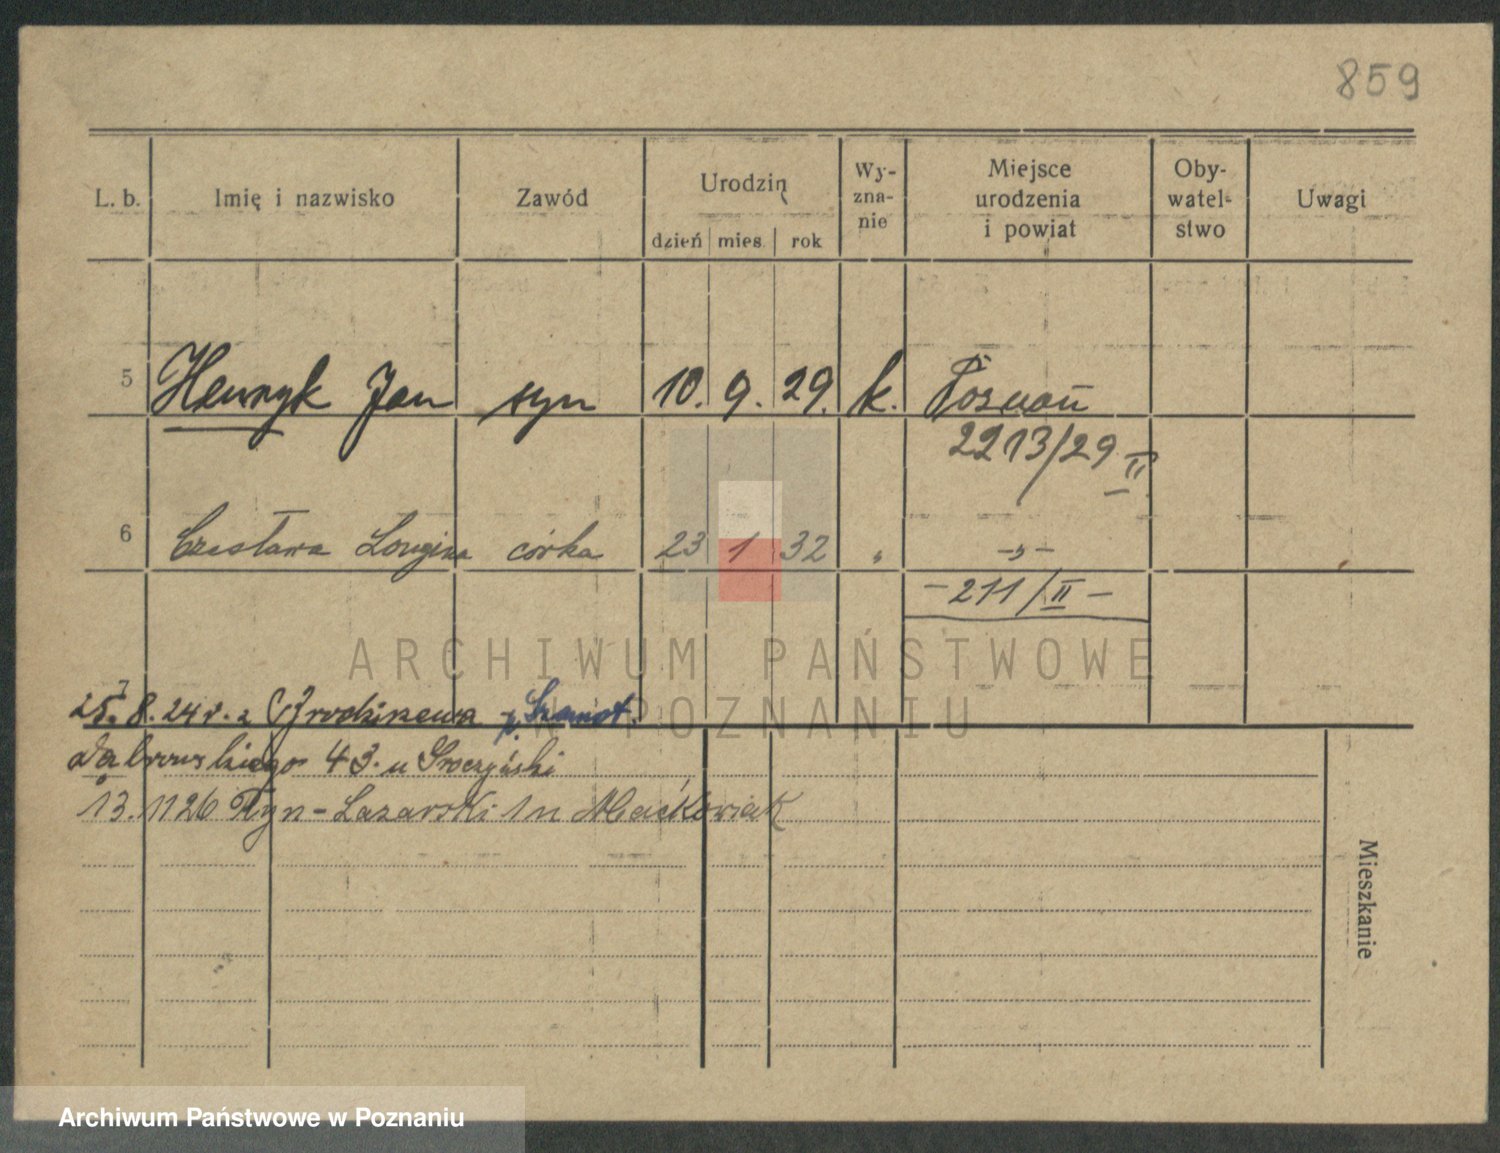 859
L. b. Imię i nazwisko Zawód Urodzin dzień mies. rok Wy-zna-nie Miejsce urodzenia i powiat Oby-watel-stwo Uwagi
5 Henryk Jan syn 10. 9. 29. k. Poznań
2213/29 II
6 Czesława Longina córka 23 1 32 " -"-
-211/II-
ARCHIWUM PAŃSTWOWE
W POZNANIU
25. 8. 24 r. z p. Szamot.
Dąbrowskiego 43. u
13. 11 26 Ryn-Łazarski 1 u Maćkowiak
Mieszkanie
Archiwum Państwowe w Poznaniu